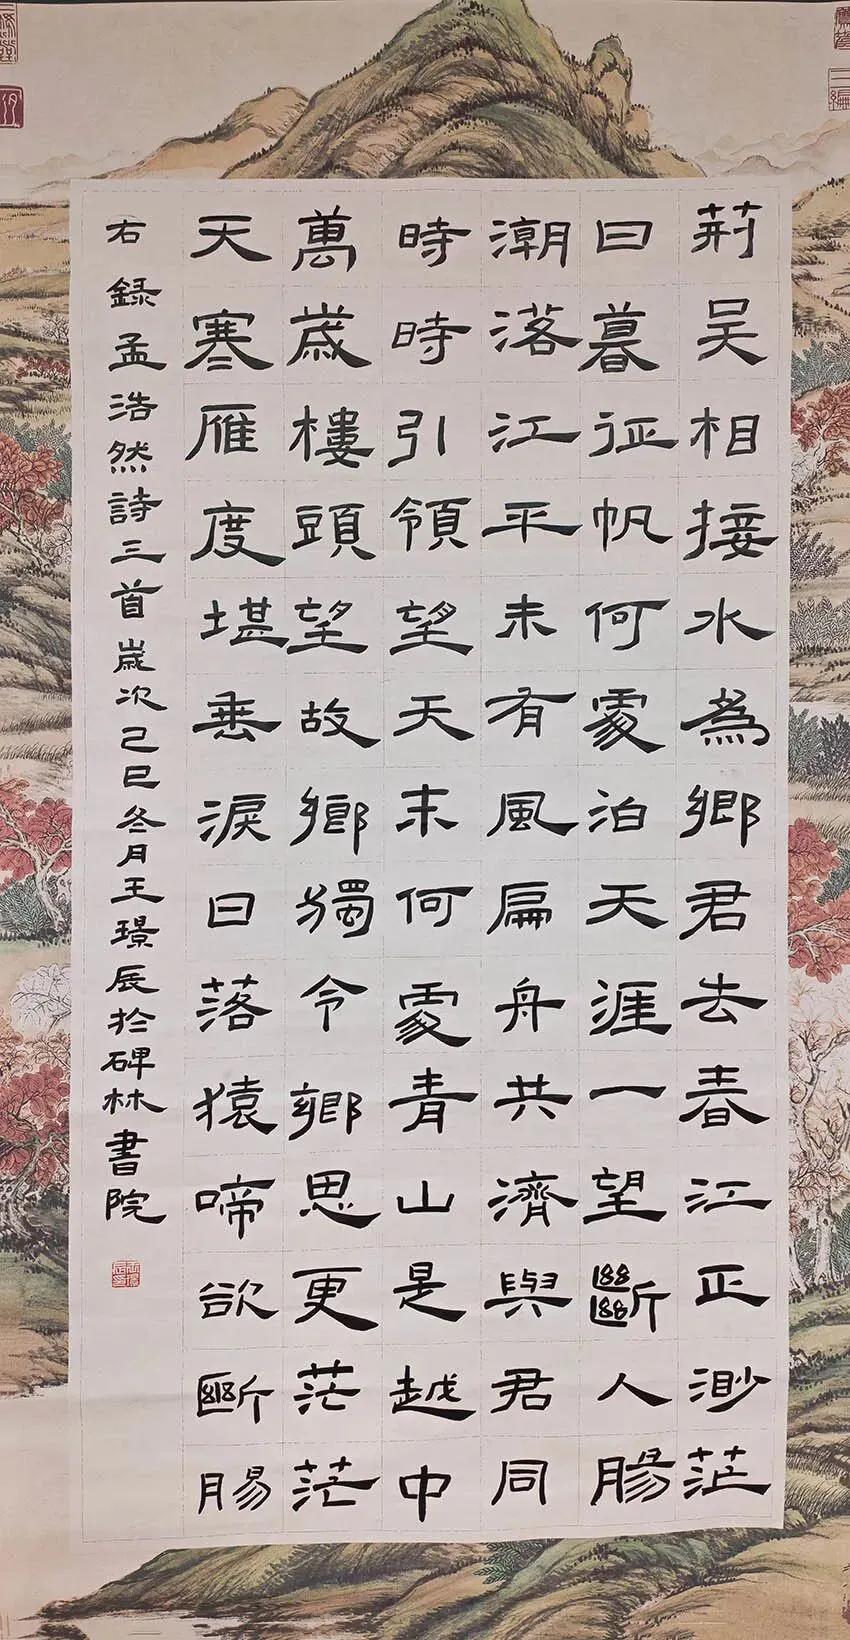 荊吴相接水為鄉君去春江正渺茫
日暮征帆何處泊天涯一望斷人腸
潮落江平未有風扁舟共濟與君同
時時引領望天末何處青山是越中
萬歲樓頭望故鄉獨令鄉思更茫茫
天寒雁度堪垂淚日落猿啼欲斷腸
右錄孟浩然詩三首歲次己巳冬月王璟辰於碑林書院